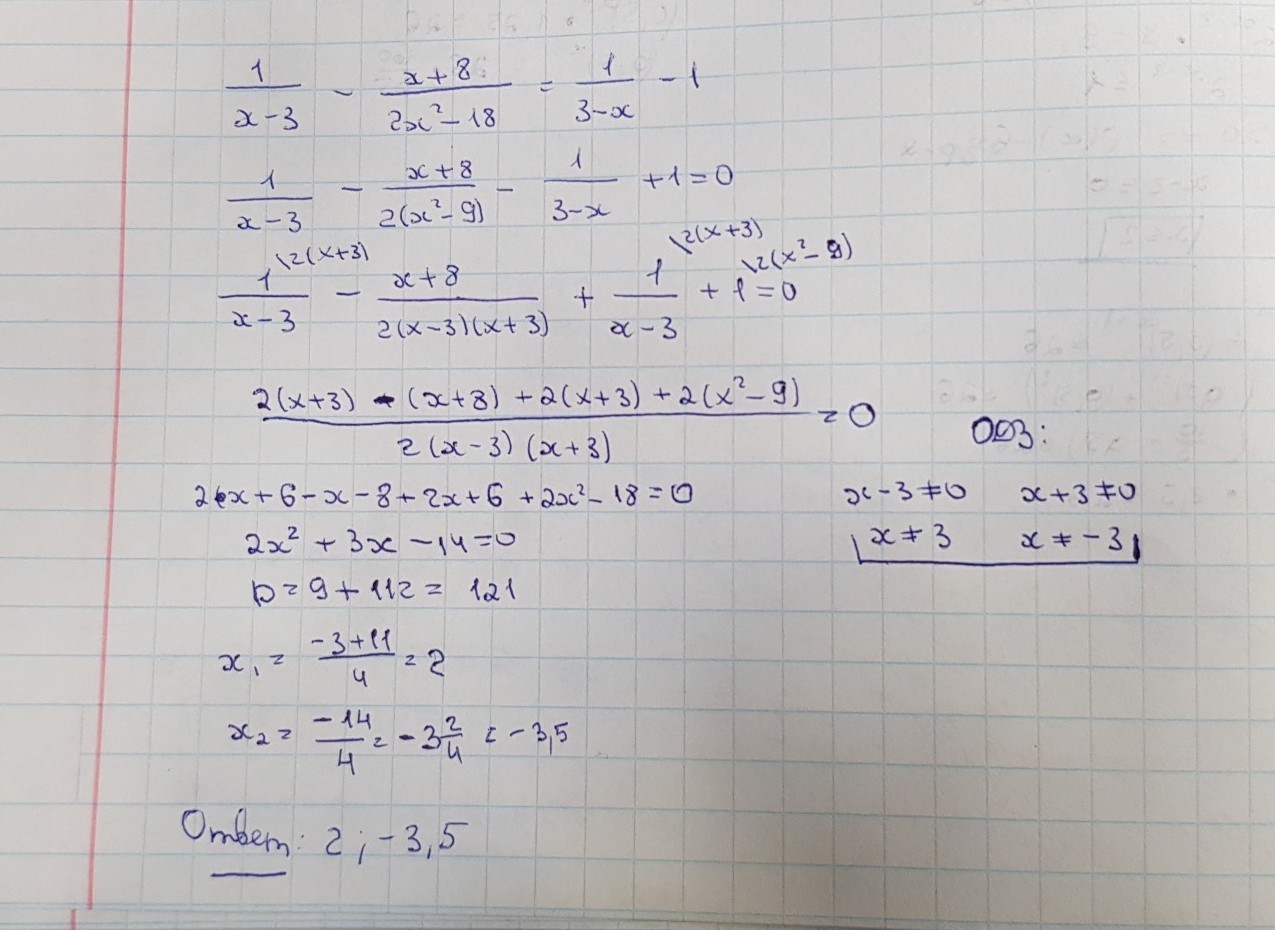 1/(x-3) - (x+8)/(2x²-18) = 1/(3-x) - 1
1/(x-3) - (x+8)/(2(x²-9)) - 1/(3-x) + 1 = 0
1\2(x+3)/(x-3) - (x+8)/(2(x-3)(x+3)) + 1\2(x+3)/(x-3) + 1\2(x²-9) = 0
(2(x+3) - (x+8) + 2(x+3) + 2(x²-9))/(2(x-3)(x+3)) = 0
ОДЗ:
2x+6-x-8+2x+6+2x²-18=0
x-3≠0 x+3≠0
2x²+3x-14=0
x≠3 x≠-3
D=9+112=121
x₁ = (-3+11)/4 = 2
x₂ = -14/4 = -3 2/4 = -3,5
Ответ: 2; -3,5